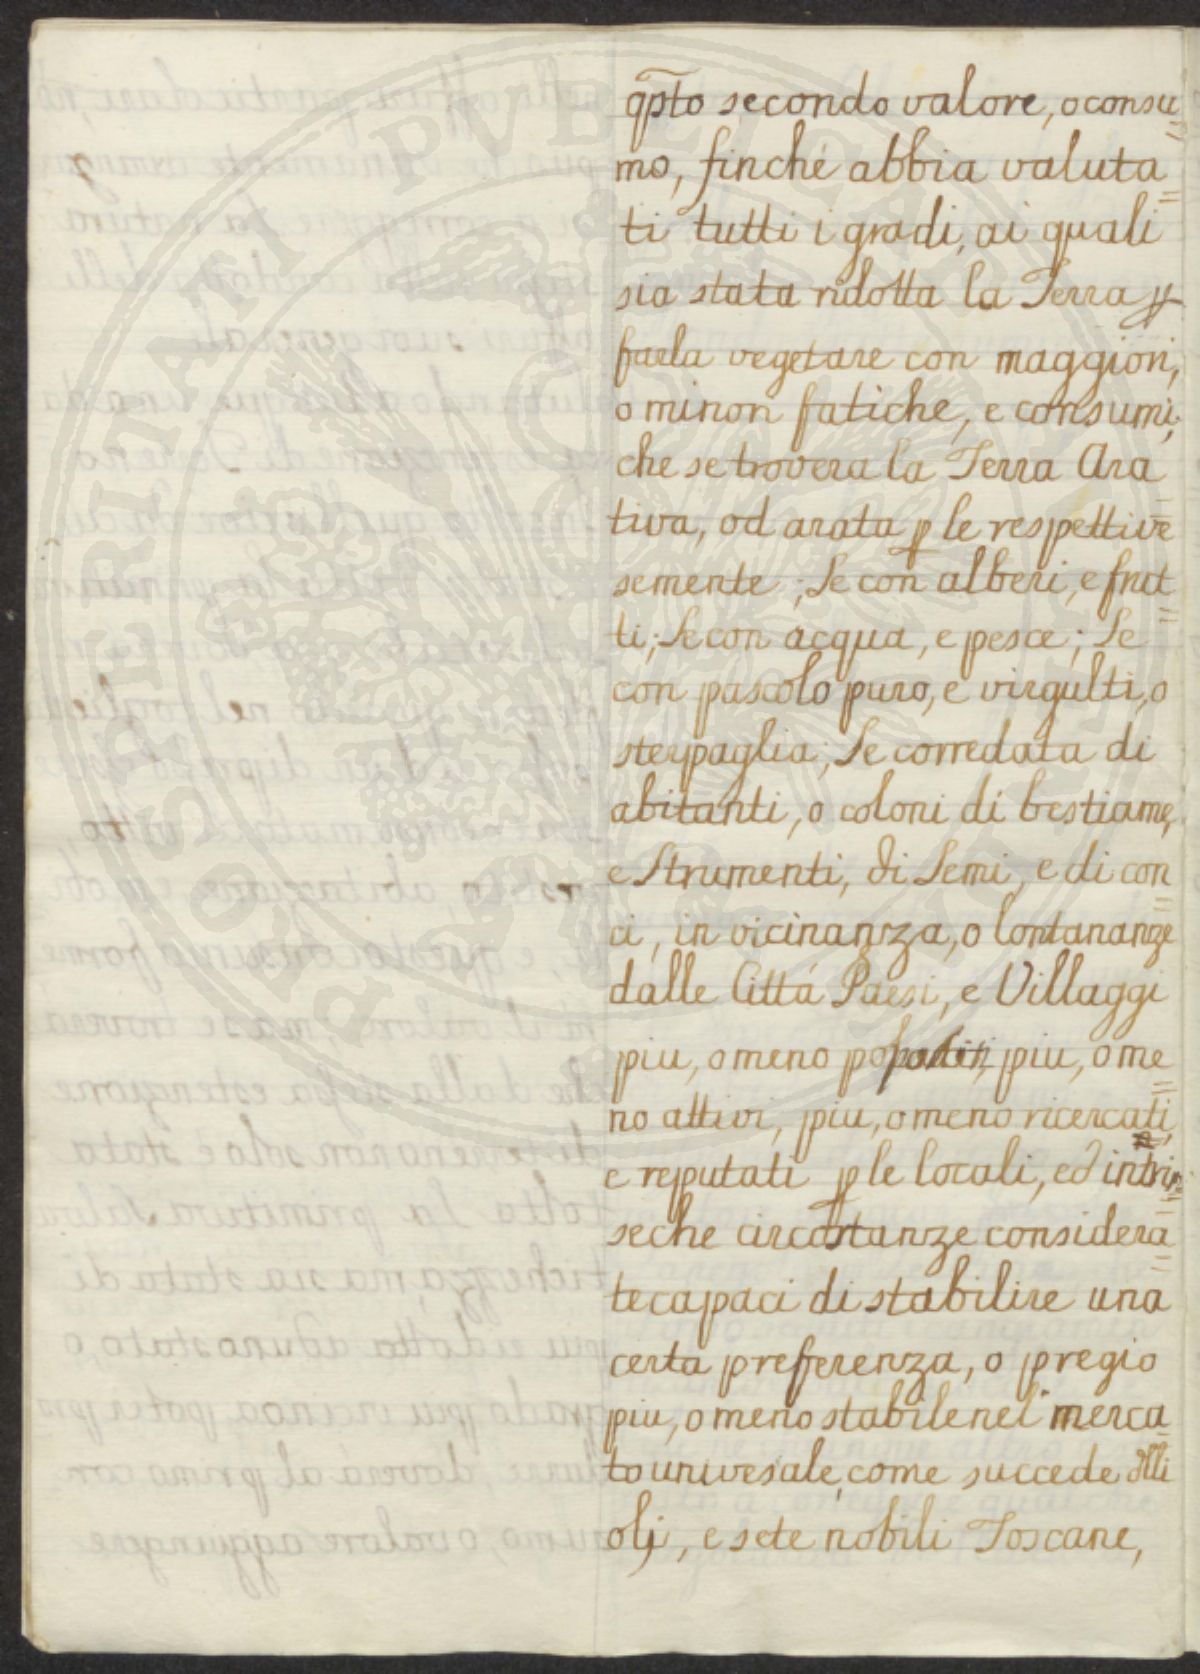 PROSPERITATI PVBLICAE AVGENDAE
qpsto secondo valore, o consu=
mo, finché abbia valuta=
ti tutti i gradi, ai quali
sia stata ridotta la Terra p
farla vegetare con maggiori,
o minori fatiche, e consumi;
che se trovera la Terra Ara=
tiva, od arata p le respettive
semente; Se con alberi, e frut=
ti; Se con acqua, e pesce; Se
con pascolo puro, e virgulti, o
sterpaglia; Se corredata di
abitanti, o coloni di bestiame,
e Strumenti, di Semi, e di con=
ci, in vicinanza, o lontananze
dalle Cittá Paesi, e Villaggi
piu, o meno piu, o me=
no attivi, piu, o meno ricercati,
e reputati p le locali, ed intrin=
seche circostanze considera=
te capaci di stabilire una
certa preferenza, o pregio
piu, o meno stabile nel merca=
to univesale, come succede dlli
olj, e sete nobili Toscane,